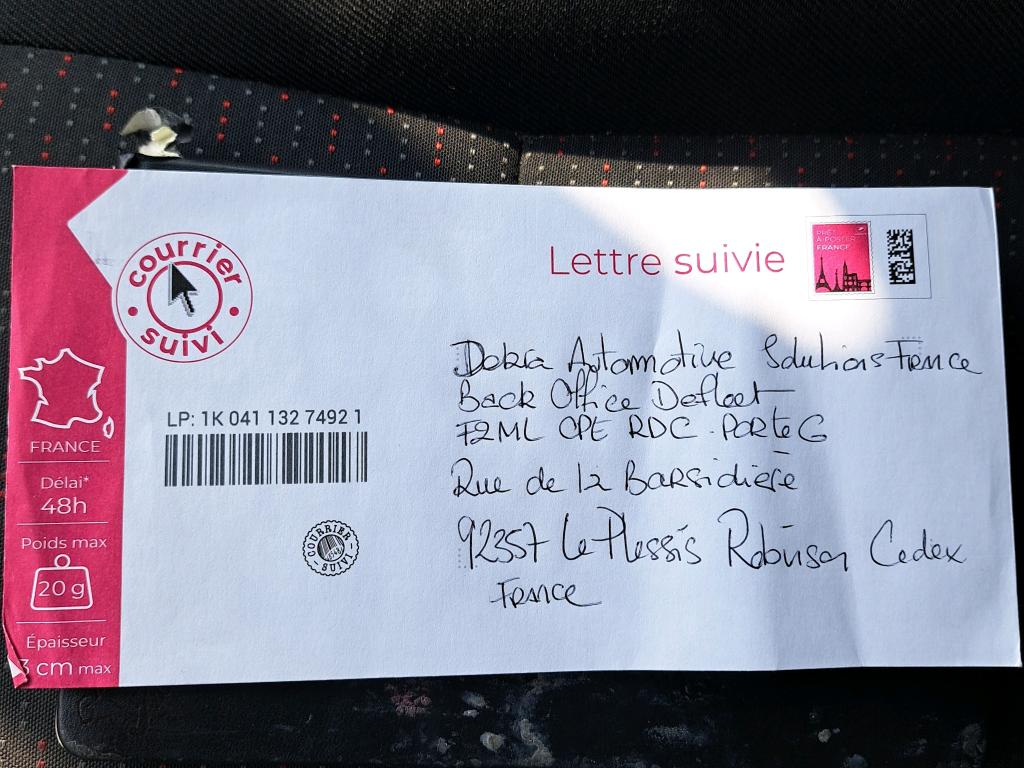 courrier
suivi
Lettre suivie
PRÊT
À POSTER
FRANCE
Dekra Automotive Solutions France
Back Office Defleet
F2ML CPE RDC - Porte G
Rue de la Barsidière
92357 Le Plessis Robinson Cedex
France
LP: 1K 041 132 7492 1
COURRIER
SUIVI
FRANCE
Délai*
48h
Poids max
20 g
Épaisseur
3 cm max